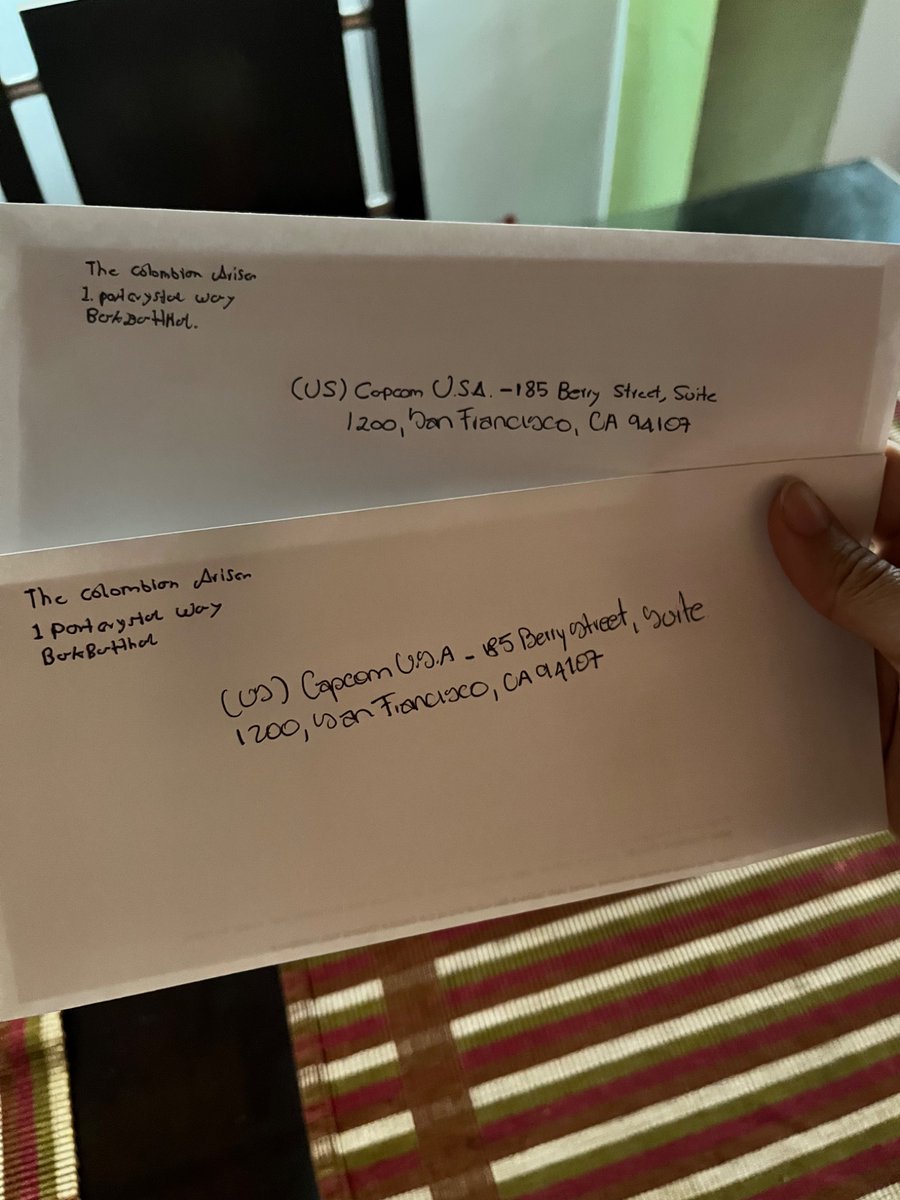 The Colombian Arisen
1. portcrystal way
BarkBattHal.
(US) Capcom U.S.A. - 185 Berry Street, Suite
1200, San Francisco, CA 94107
The Colombian Arisen
1 Portcrystal way
BarkBattHal
(US) Capcom U.S.A - 185 Berry Street, Suite
1200, San Francisco, CA 94107